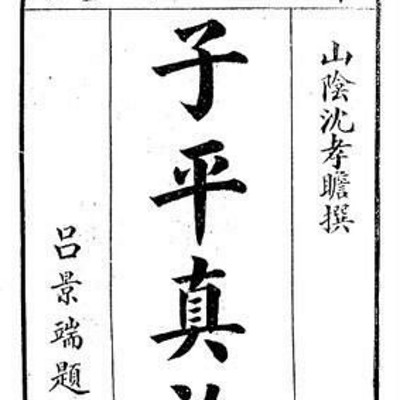 山陰沈孝瞻撰
子平真
呂景端題